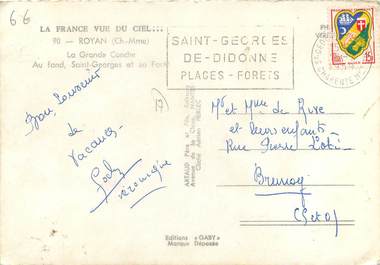 66
LA FRANCE VUE DU CIEL...
90 - ROYAN (Ch-Mme)
La Grande Conche
Au fond, Saint-Georges et sa Forêt
SAINT-GEORGES
DE-DIDONNE
PLAGES - FORETS
15
17
Bon Souvenir
de
Vacances
Véronique
Mr et Mme de Rive
et leurs enfants
Rue Pierre Loti
Brunoy
(S et O)
Editions "GABY"
Marque Déposée